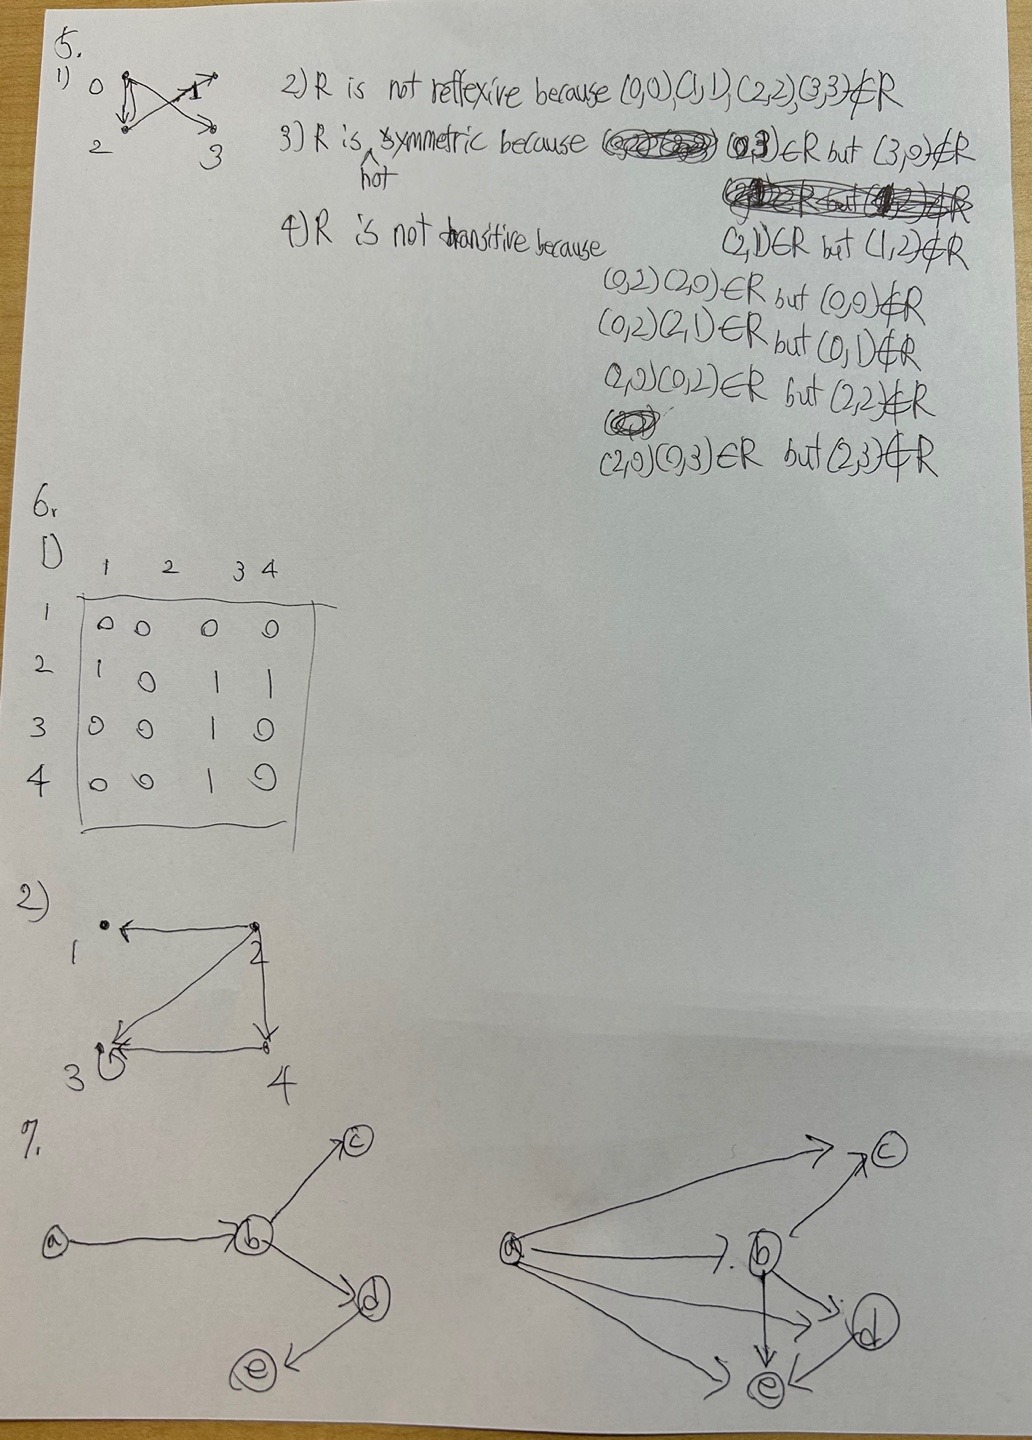 5.
1) 0 1
2 3
2) R is not reflexive because (0,0),(1,1),(2,2),(3,3)∉R
3) R is not symmetric because (0,3)∈R but (3,0)∉R
(2,1)∈R but (1,2)∉R
4) R is not transitive because
(0,2)(2,0)∈R but (0,0)∉R
(0,2)(2,1)∈R but (0,1)∉R
(2,0)(0,2)∈R but (2,2)∉R
(2,0)(0,3)∈R but (2,3)∉R
6.
1) 1 2 3 4
1 0 0 0 0
2 1 0 1 1
3 0 0 1 0
4 0 0 1 0
2)
1 2
3 4
7.
c c
a b a b
d d
e e